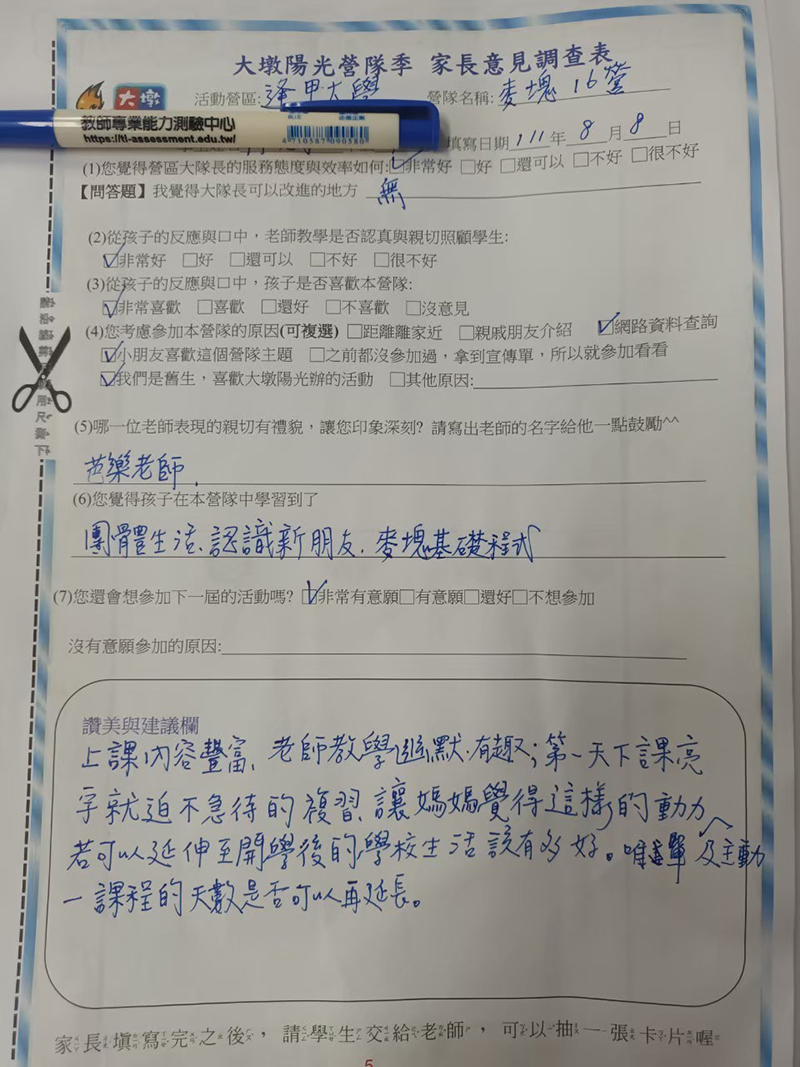 大墩陽光營隊季 家長意見調查表
大墩 活動營區:逢甲大學 營隊名稱:麥塊16營
教師專業能力測驗中心
https://tl-assessment.edu.tw/
4710587090580
填寫日期 111年8月8日
(1)您覺得營區大隊長的服務態度與效率如何:☑非常好 □好 □還可以 □不好 □很不好
【問答題】我覺得大隊長可以改進的地方 無
(2)從孩子的反應與口中，老師教學是否認真與親切照顧學生:
☑非常好 □好 □還可以 □不好 □很不好
(3)從孩子的反應與口中，孩子是否喜歡本營隊:
☑非常喜歡 □喜歡 □還好 □不喜歡 □沒意見
(4)您考慮參加本營隊的原因(可複選) □距離離家近 □親戚朋友介紹 ☑網路資料查詢
☑小朋友喜歡這個營隊主題 □之前都沒參加過，拿到宣傳單，所以就參加看看
☑我們是舊生，喜歡大墩陽光辦的活動 □其他原因:
(5)哪一位老師表現的親切有禮貌，讓您印象深刻? 請寫出老師的名字給他一點鼓勵^^
芭樂老師.
(6)您覺得孩子在本營隊中學習到了
團體生活、認識新朋友. 麥塊基礎程式
(7)您還會想參加下一屆的活動嗎? ☑非常有意願□有意願□還好□不想參加
沒有意願參加的原因:
讚美與建議欄
上課內容豐富、老師教學幽默.有趣；第一天下課亮
孚就迫不急待的複習、讓媽媽覺得這樣的動力及主動
若可以延伸至開學後的學校生活該有多好。唯
一課程的天數是否可以再延長。
家長填寫完之後，請學生交給老師，可以抽一張卡片喔
5